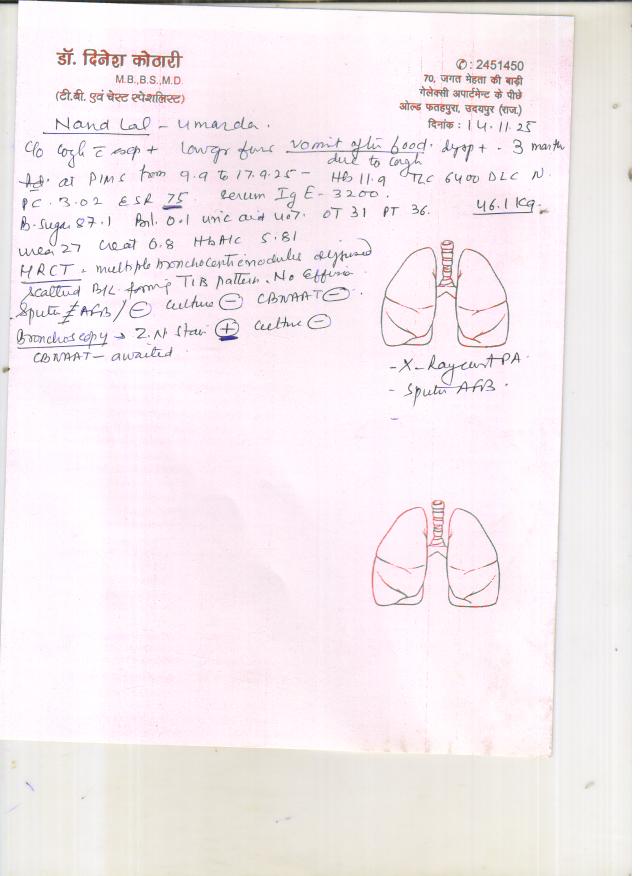 डॉ. दिनेश कोठारी
M.B.,B.S.,M.D.
(टी.बी. एवं चेस्ट स्पेशलिस्ट)
✆: 2451450
70, जगत मेहता की बाड़ी
गेलेक्सी अपार्टमेन्ट के पीछे
ओल्ड फतहपुरा, उदयपुर (राज.)
दिनांक : 14.11.25
Nand Lal - Umarda.
C/o cough c̄ exp + low gr fever vomit after food. dysp + - 3 month
due to cough
Ad. at PIMS from 9.9 to 17.9.25 - Hb 11.9 TLC 6400 DLC N.
PC. 3.02 ESR 75 serum IgE - 3200.
B. Sugar 87.1 Bil. 0.1 uric acid 4.07. OT 31 PT 36.
46.1 Kg.
urea 27 creat 0.8 HbA1c 5.81
HRCT - multiple bronchocentric nodules diffused
scattered B/L forming TIB pattern. No Effusion
Sputum AFB/ ⊖ culture ⊖ CBNAAT ⊖
Bronchoscopy → Z.N Stain ⊕ culture ⊖
CBNAAT - awaited.
- X-Ray chest PA
- Sputum AFB.